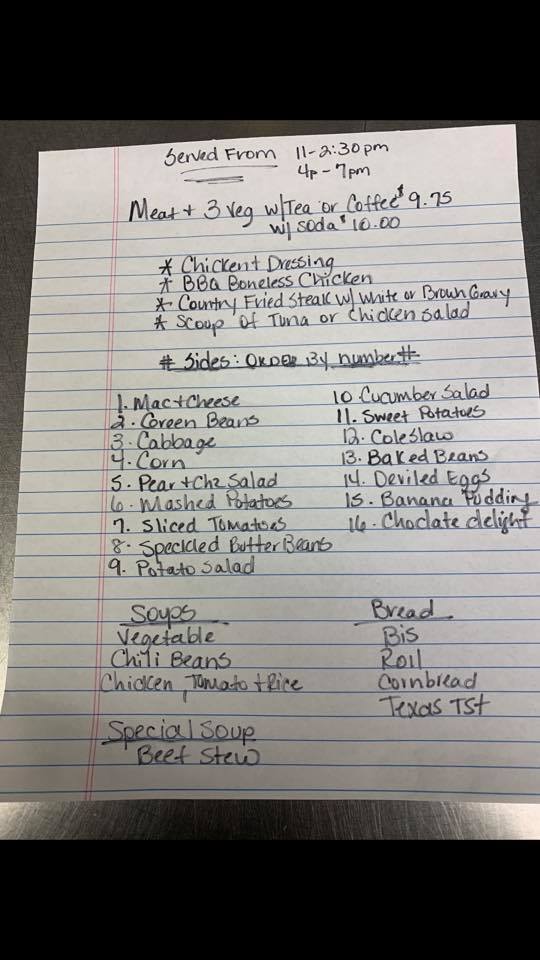 Served From 11-2:30pm
4p-7pm
Meat + 3 Veg w/Tea or Coffee $9.75
w/ soda $10.00
* Chicken+ Dressing
* BBQ Boneless Chicken
* Country Fried Steak w/ White or Brown Gravy
* Scoup of Tuna or Chicken Salad
# Sides: ORDER By number #
1. Mac+Cheese
2. Green Beans
3. Cabbage
4. Corn
5. Pear + Chz Salad
6. Mashed Potatoes
7. Sliced Tomatoes
8. Speckled Butter Beans
9. Potato Salad
10 Cucumber Salad
11. Sweet Potatoes
12. Coleslaw
13. Baked Beans
14. Deviled Eggs
15. Banana Pudding
16. Choclate delight
Soups
Vegetable
Chili Beans
Chicken, Tomato + Rice
Special Soup
Beef Stew
Bread
Bis
Roll
Cornbread
Texas TSt